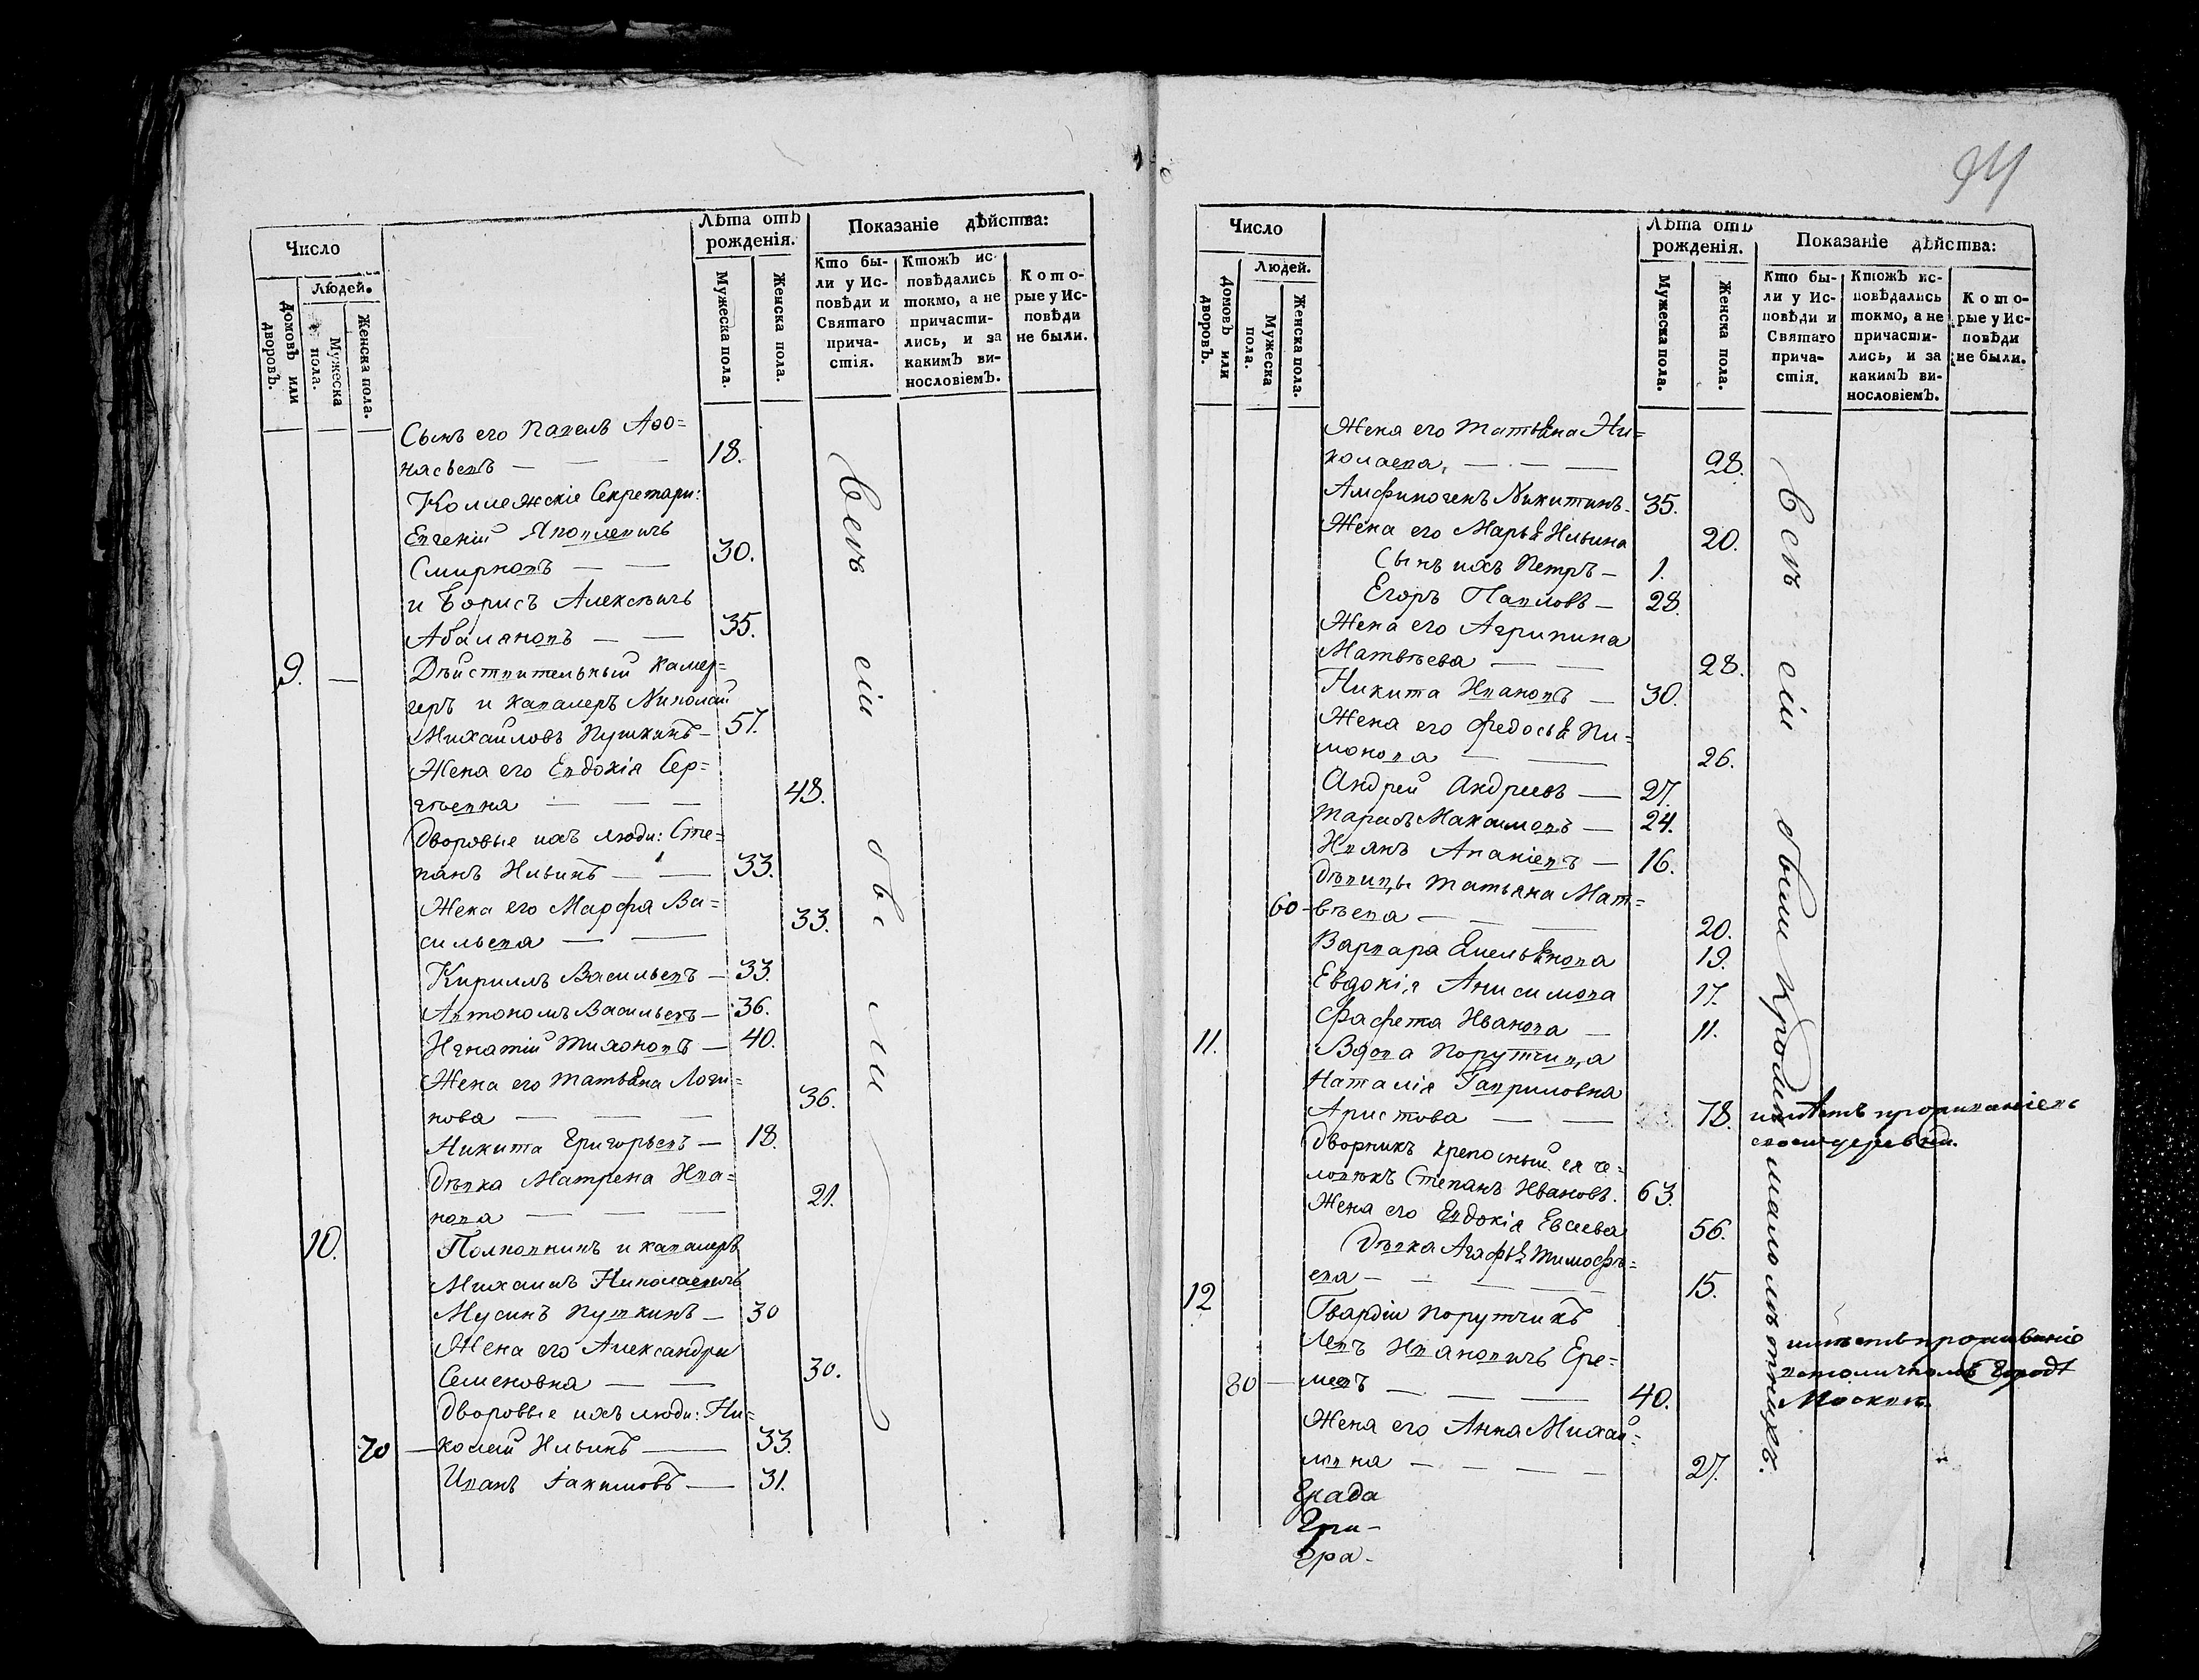 Число
Людей.
Домовъ или дворовъ.
Мужеска пола.
Женска пола.
Лѣта отъ рожденія.
Мужеска пола.
Женска пола.
Показаніе дѣйства:
Кто бы-
ли у Ис-
повѣди и
Святаго
прича-
стія.
Ктожъ ис-
повѣдались
токмо, а не
причасти-
лись, и за
какимъ ви-
нословіемъ.
Кото-
рые у Ис-
повѣди
не были.
Сынъ его Павелъ Афо=
насьевъ — — — 18.
Коллежскіе Секретари:
Евгеній Яковлевичь
Смирновъ — — 30.
и Борисъ Алексѣичь
Абаляновъ — — 35.
9. — Дѣйствительный Камер=
геръ и кавалеръ Николай
Михайловъ Пушкинъ — 57.
Жена его Евдокія Сер=
гѣевна — — — 48.
Дворовые ихъ люди: Сте=
панъ Ильинъ — — 33.
Жена его Марфа Ва=
сильева — — 33.
Кириллъ Васильевъ — 33.
Автономъ Васильевъ — 36.
Игнатій Тихоновъ — 40.
Жена его Татьяна Логи=
нова — — — 36.
Никита Григорьевъ — 18.
Дѣвка Матрена Ива=
нова — — — 21.
10. Полковникъ и кавалеръ
Михаилъ Николаевичь
Мусинъ Пушкинъ — 30
Жена его Александра
Семеновна — — 30.
Дворовые ихъ люди: Ни=
70 — колай Ильинъ — 33.
Иванъ Іакимовъ — 31.
Всѣ сіи бы ли
94
Число
Людей.
Домовъ или дворовъ.
Мужеска пола.
Женска пола.
Лѣта отъ рожденія.
Мужеска пола.
Женска пола.
Показаніе дѣйства:
Кто бы-
ли у Ис-
повѣди и
Святаго
прича-
стія.
Ктожъ ис-
повѣдались
токмо, а не
причасти-
лись, и за
какимъ ви-
нословіемъ.
Кото-
рые у Ис-
повѣди
не были.
Жена его Татьяна Ни=
колаева. — — — 28.
Амфиногенъ Никитинъ — 35.
Жена его Марья Ильина 20.
Сынъ ихъ Петръ — 1.
Егоръ Павловъ — 28.
Жена его Агрипина
Матвѣева — — 28.
Никита Ивановъ — 30.
Жена его Федосья Пи=
монова — — 26.
Андрей Андреевъ — 27.
Тарасъ Максимовъ — 24.
Иванъ Ананіевъ — 16.
Дѣвицы Татьяна Мат=
60 — вѣева — — 20.
Варвара Емельянова 19.
Евдокія Анисимова 17.
Фафета Иванова — 11.
11. Вдова Порутчица
Наталія Гавриловна
Аристова — — 78. имѣетъ проживаніе въ
своей деревни.
Дворникъ крепосный ея че=
ловѣкъ Степанъ Ивановъ. 63.
Жена его Евдокія Евсеева 56.
Дѣвка Агафья Тимофѣ=
ева — — — 15.
12 Гвардіи Порутчикъ
Левъ Ивановичь Ере=
80 — мевъ — — — 40.
имѣетъ проживаніе
въ столичномъ Городѣ
Москвѣ.
Жена его Анна Михай=
ловна — — — — 27.
Всѣ сіи были Кромѣ малолѣтнихъ.